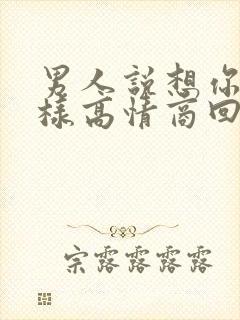 男人说想你
样高情商回
宗露露露露